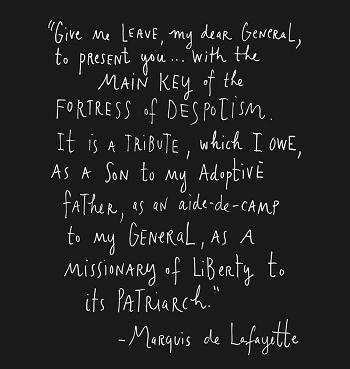 "Give me LEAVE, my dear GENERAL,
to PRESENT you... with the
MAIN KEY of the
FORTRESS of DESPOTISM.
It is A TRIBUTE, which I OWE,
AS A SON to my ADOPTIVE
FATHER, as an aide-de-CAMP
to my GENERAL, AS A
MISSIONARY of LIBERTY to
its PATRIARCH."
-Marquis de Lafayette